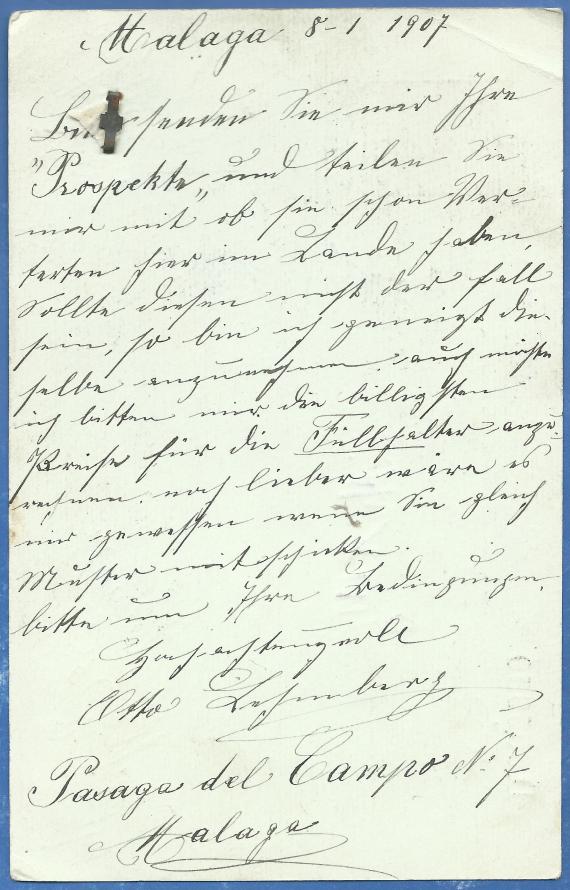 Malaga 8-1 1907
senden Sie mir Ihre
"Prospekte„ und teilen Sie
mir mit ob sie schon Ver-
terten hier im Lande haben,
Sollte diesen nicht der fall
sein, so bin ich geneigt die-
selbe anzunehmen. auch möchte
ich bitten mir die billigsten
Preise für die Füllhalter anzu-
rechnen. noch lieber wäre es
mir gewessen wenn Sie gleich
Muster mit schicken.
bitte um Ihre Bedingungen.
Hochachtungvoll
Otto
Pasaga del Campo No 7
Malaga